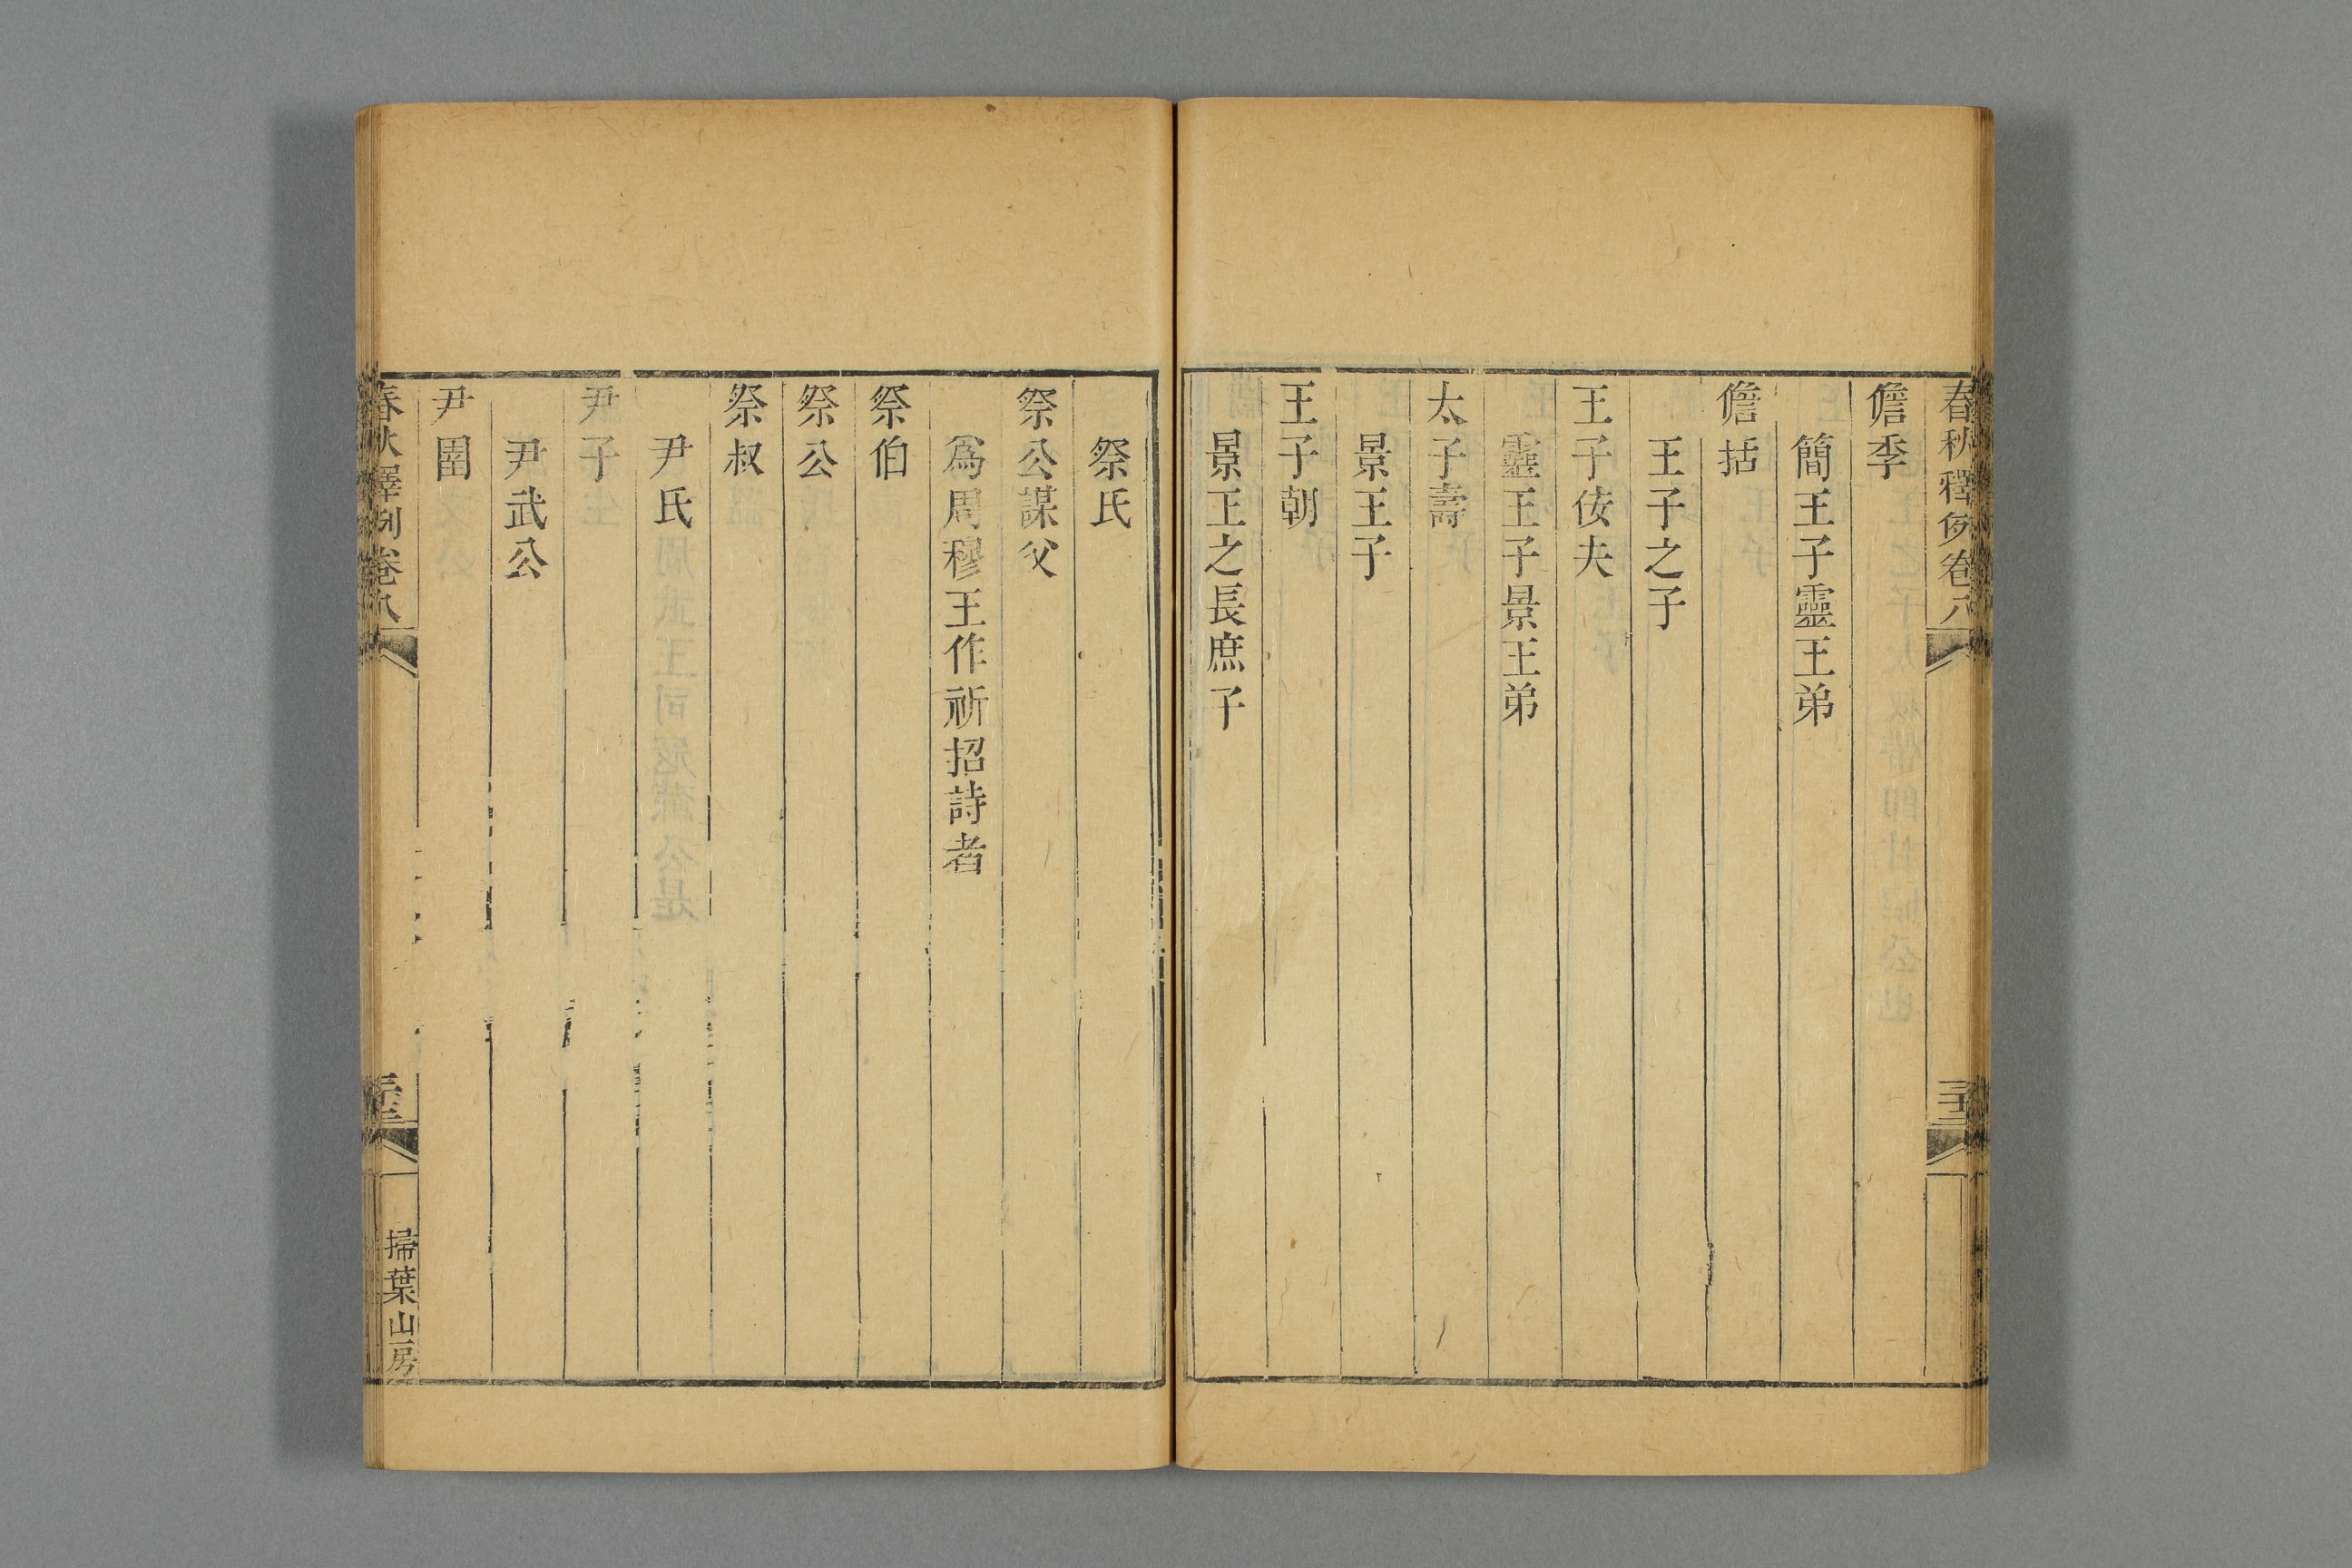 春秋釋例卷八
儋季
簡王子靈王弟
儋括
王子之子
王子佞夫
靈王子景王弟
太子壽
景王子
王子朝
景王之長庶子
祭氏
祭公謀父
爲周穆王作祈招詩者
祭伯
祭公
祭叔
尹氏
尹子
尹武公
尹圉
春秋釋例卷八
掃葉山房